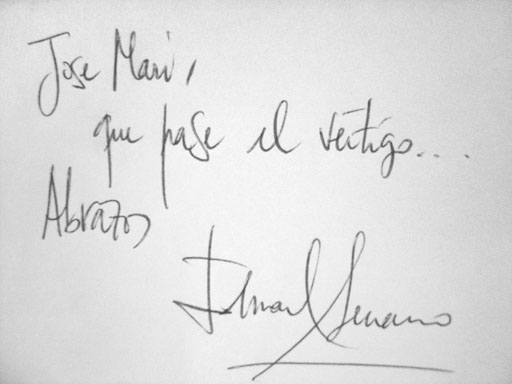 Jose Mari,
que pase el vértigo....
Abrazos
Ismael Serrano